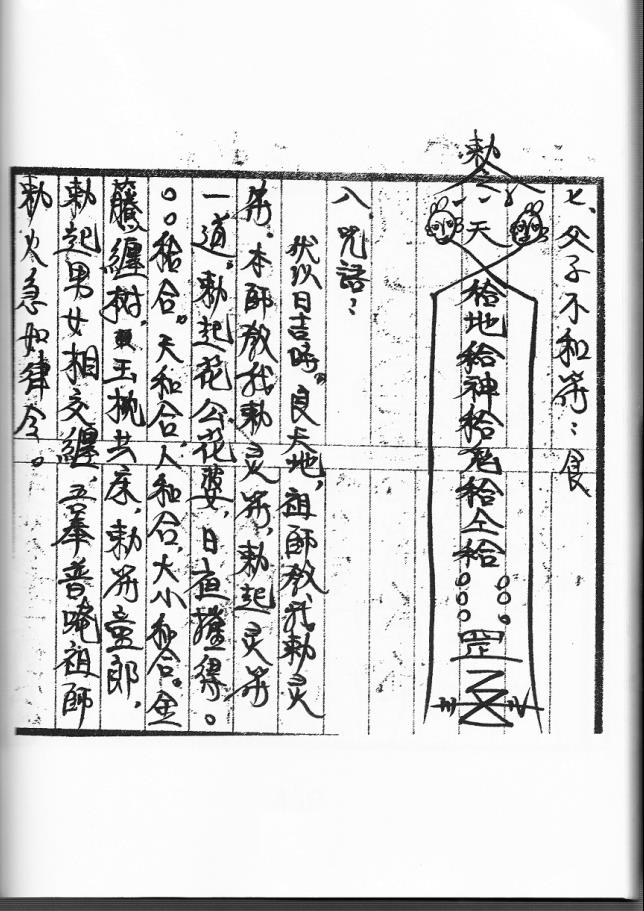 七、父子不和符：食
敕令
天
給地給神給鬼給仝給
罡
八、咒語：
伏以日吉時良天地，祖師教我敕灵
符。本師教我敕灵符，敕起灵符
一道。敕起花公花婆，日夜擁得。
○○給合。天和合，人和合，大小和合。金
籐纏树，玉枕共床，敕符童郎，
敕起男女相交纏，吾奉普唵祖師
敕火急如律令。